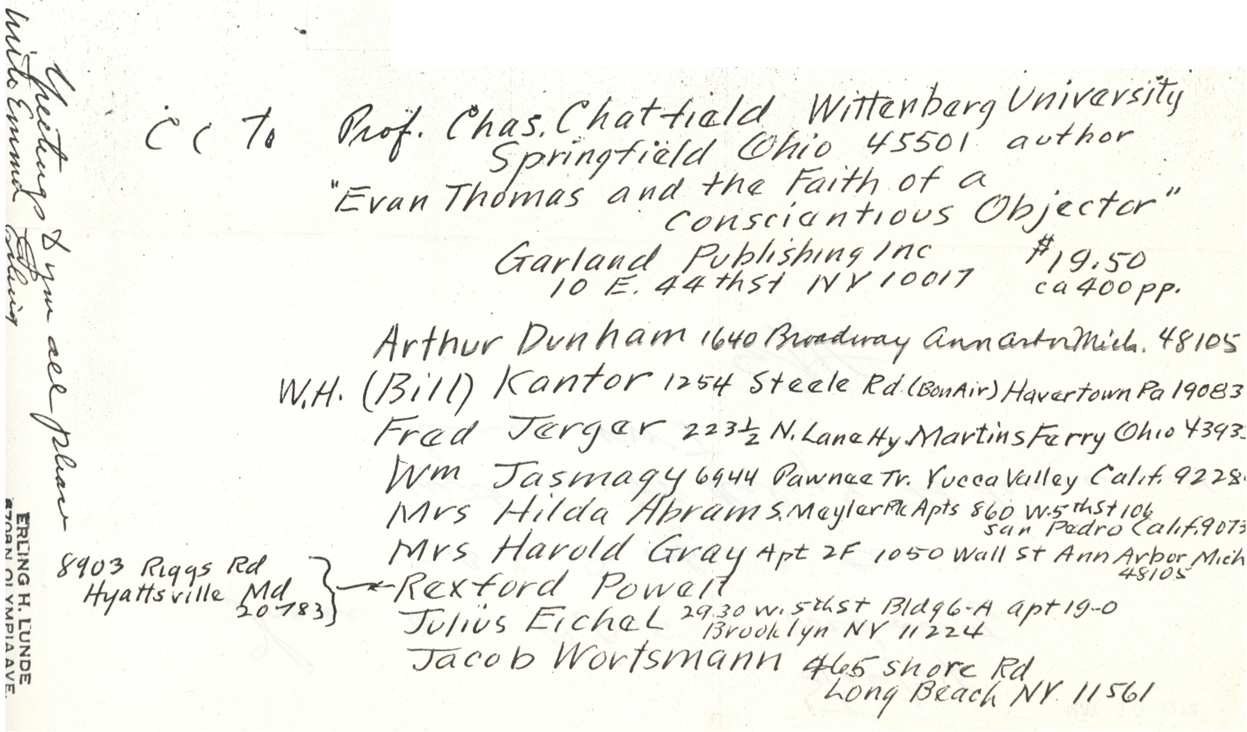 CC To Prof. Chas. Chatfield Wittenberg University
Springfield Ohio 45501 author
"Evan Thomas and the Faith of a
Consciantious Objector"
Garland Publishing Inc $19.50
10 E. 44thst NY 10017 ca 400 pp.
Arthur Dunham 1640 Broadway Ann arbor Mich. 48105
W.H. (Bill) Kantor 1254 Steele Rd. (BonAir) Havertown Pa 19083
Fred Jerger 223½ N. Lane Hy. Martins Ferry Ohio 4393
Wm Jasmagy 6944 Pawnee Tr. Yucca Valley Calif. 9228
Mrs Hilda Abrams. Meyler Pk Apts 860 W. 5thst 106
san Pedro Calif. 9073
Mrs Harold Gray Apt 2F 1050 Wall St Ann Arbor Mich
48105
8903 Riggs Rd
Hyattsville Md
20783
Rexford Powell
Julius Eichel 2930 W. 5thst Bldg 6-A apt 19-0
Brooklyn NY 11224
Jacob Wortsmann 465 shore Rd
Long Beach NY 11561
Greetings to you all please
write Emma Erling
ERLING H. LUNDE
OLYMPIA AVE.